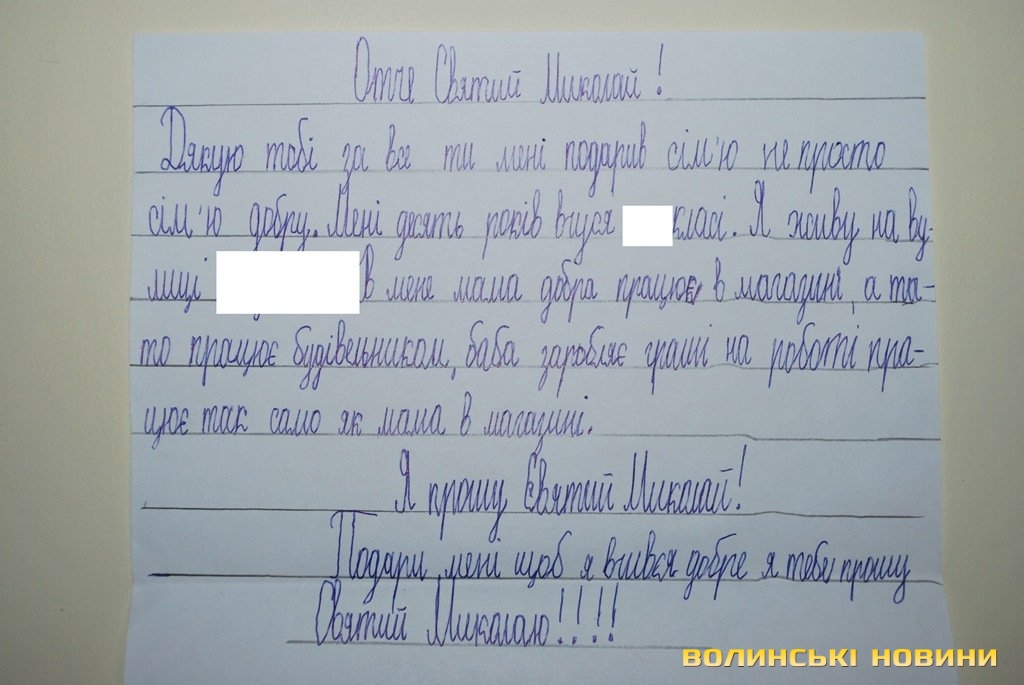 Отче Святий Миколай!
Дякую тобі за все ти мені подарив сім'ю не просто
сім'ю добру. Мені десять років вчуся класі. Я живу на ву-
лиці В мене мама добра працює в магазині, а та-
то працює будівельником, баба заробляє гроші на роботі пра-
цює так само як мама в магазині.
Я прошу Святий Миколай!
Подари мені щоб я вчився добре я тебе прошу
Святий Миколаю!!!!
ВОЛИНСЬКІ НОВИНИ